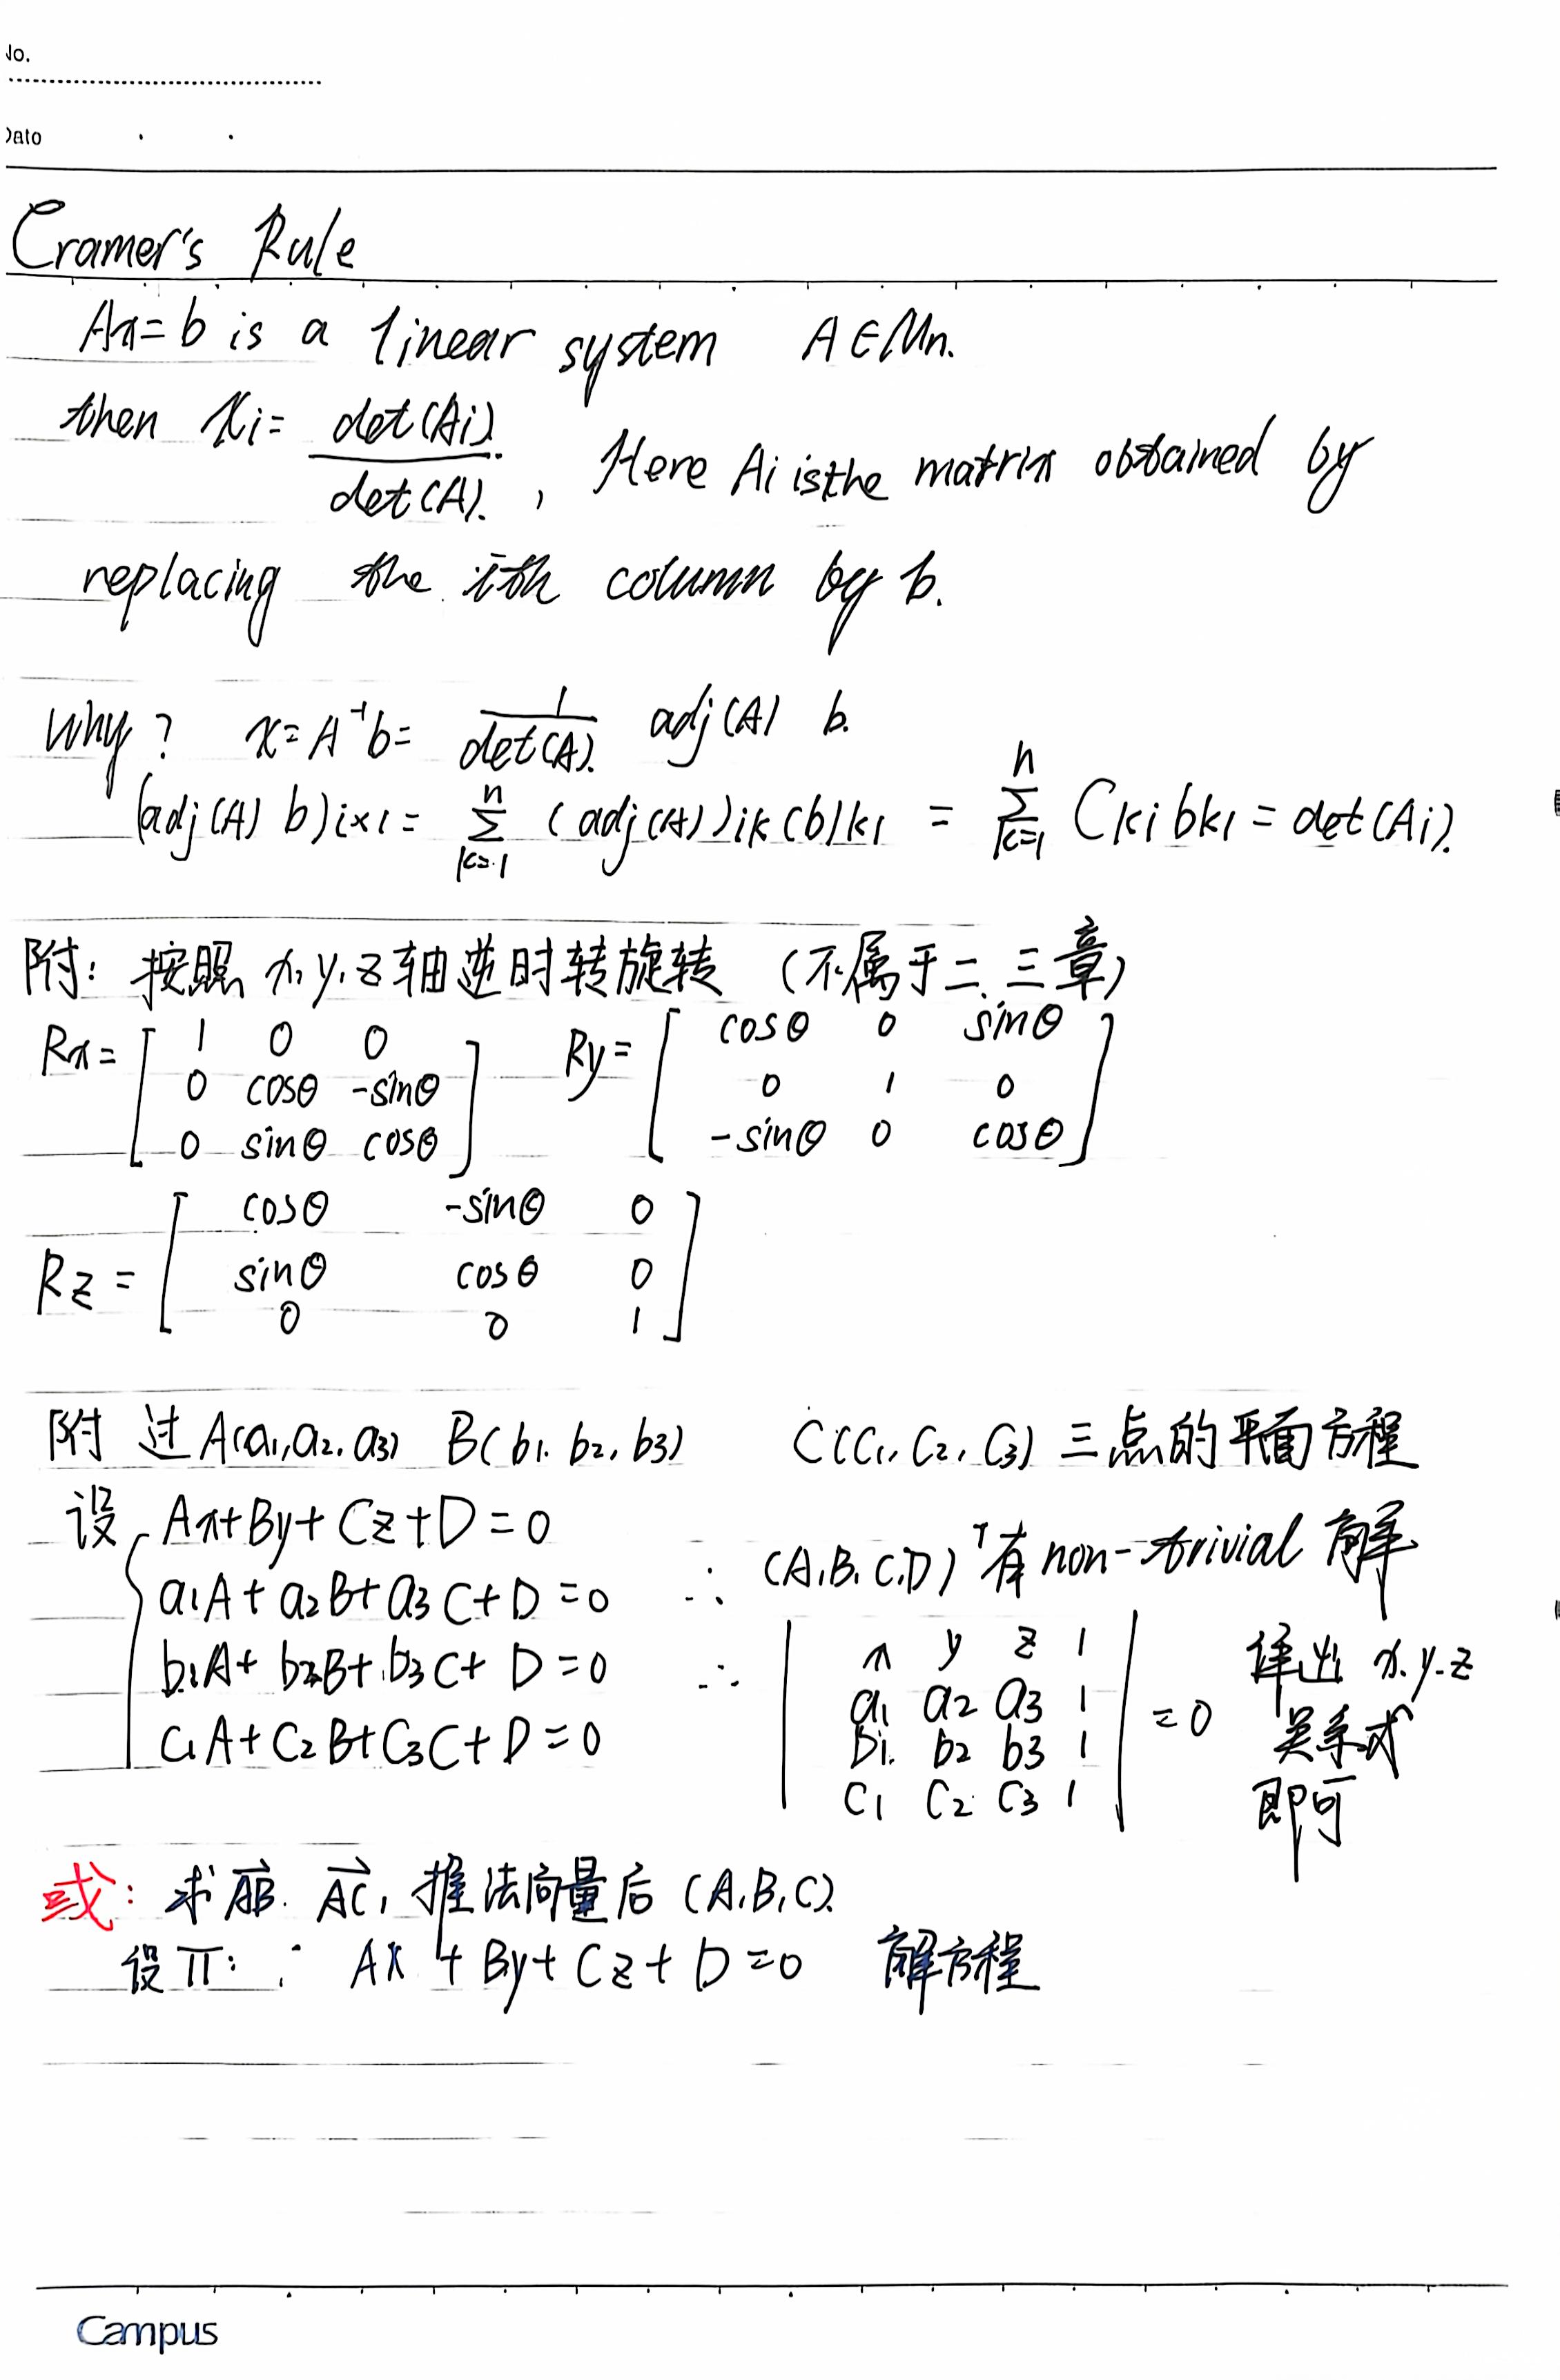 No.
Date
Cramer's Rule
Ax=b is a linear system A∈Mn.
then xi = det(Ai) / det(A). , Here Ai is the matrix obtained by
replacing the ith column by b.
Why? x=A⁻¹b= 1/det(A). adj(A) b.
(adj(A) b)i×1 = Σ_{k=1}^{n} (adj(A))ik (b)k1 = Σ_{k=1}^{n} Cki bk1 = det(Ai).
附: 按照 x, y, z 轴逆时转旋转 (不属于二、三章)
Rx = [ 1 0 0 ; 0 cosθ -sinθ ; 0 sinθ cosθ ] Ry = [ cosθ 0 sinθ ; 0 1 0 ; -sinθ 0 cosθ ]
Rz = [ cosθ -sinθ 0 ; sinθ cosθ 0 ; 0 0 1 ]
附 过 A(a1, a2, a3) B(b1, b2, b3) C(C1, C2, C3) 三点的平面方程
设 Ax+By+Cz+D=0
a1A + a2B + a3C + D = 0 ∴ (A,B,C,D)ᵀ有 non-trivial 解
b1A + b2B + b3C + D = 0 ∴ | x y z 1 ; a1 a2 a3 1 ; b1 b2 b3 1 ; C1 C2 C3 1 | = 0 解出 x.y.z
C1A + C2B + C3C + D = 0 关系式
即可
或: 求 AB→. AC→, 推法向量后 (A,B,C).
设 π: : Ax + By + Cz + D = 0 解方程
Campus